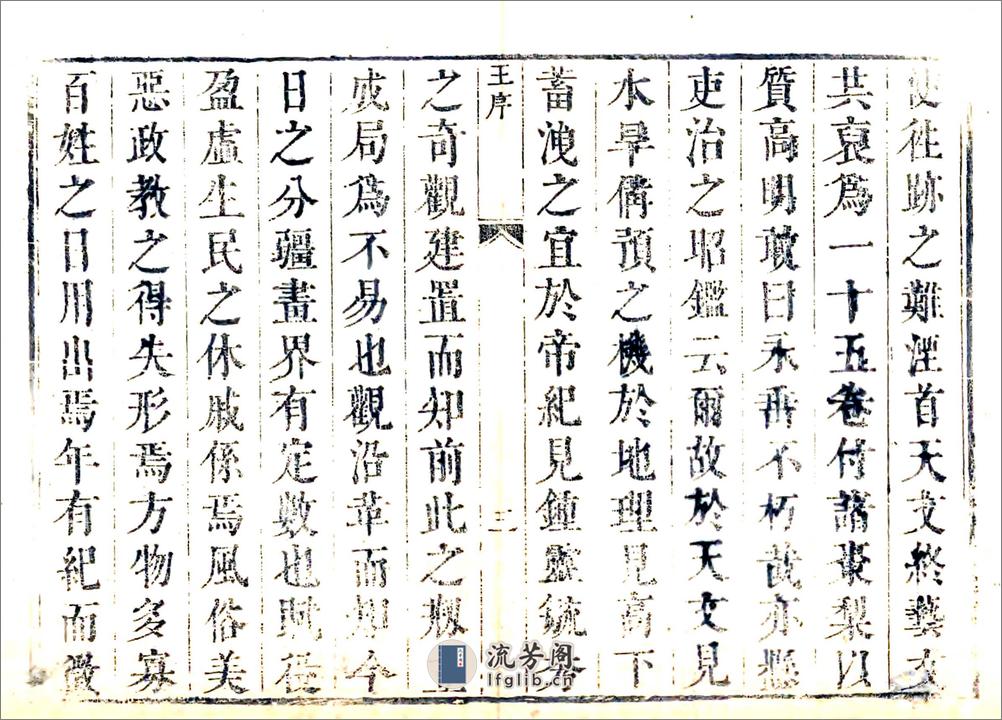 使往跡之難湮首天文終藝文
共裒爲一十五卷付諸棗梨以
質高明敢曰永垂不朽哉亦懸
吏治之昭鑑云爾故於天文見
水旱備預之機於地理見高下
蓄洩之宜於帝紀見鍾靈毓秀
王序
二
之奇觀建置而知前此之剏
成局爲不易也觀沿革而知今
日之分疆畫界有定數也賦役
盈虛生民之休戚係焉風俗美
惡政教之得失形焉方物多寡
百姓之日用出焉年有紀而徵
流芳阁
lfglib.cn